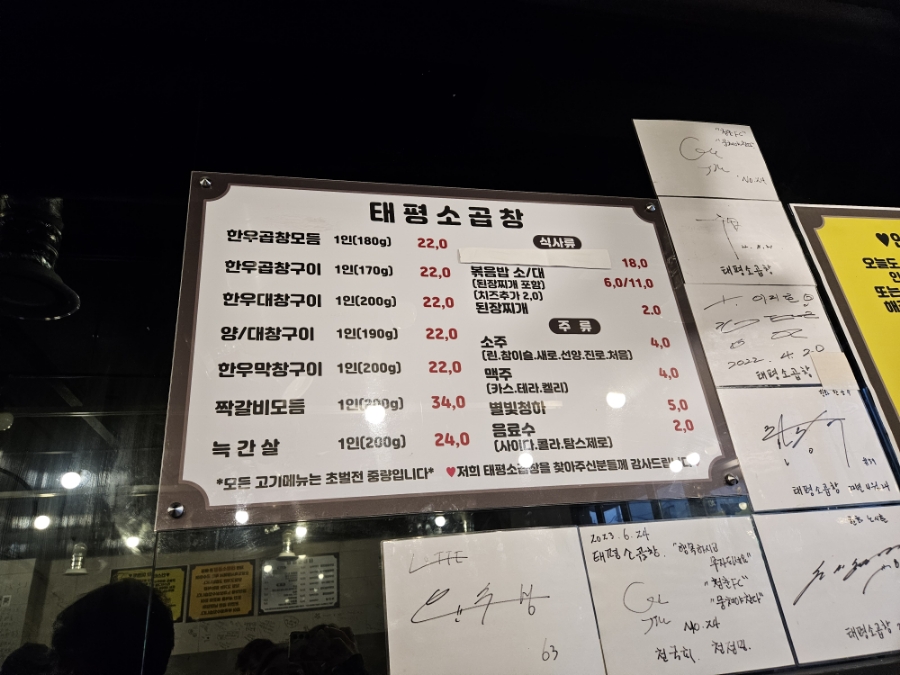 태평소곱창
한우곱창모듬 1인(180g) 22,0
한우곱창구이 1인(170g) 22,0
한우대창구이 1인(200g) 22,0
양/대창구이 1인(190g) 22,0
한우막창구이 1인(200g) 22,0
짝갈비모듬 1인(200g) 34,0
늑간살 1인(200g) 24,0
식사류
18,0
볶음밥 소/대 6,0/11,0
(된장찌개 포함)
(치즈추가 2,0)
된장찌개 2.0
주류
소주 4,0
(린.참이슬.새로.선양.진로.처음)
맥주 4,0
(카스.테라.켈리)
별빛청하 5,0
음료수 2,0
(사이다.콜라.탐스제로)
*모든 고기메뉴는 초벌전 중량입니다* ♥저희 태평소곱창을 찾아주신분들께 감사드립니다
"청춘FC"
"뭉쳐야찬다"
No.24
태평소곱창
2022. 4. 20
태평소곱창
태평소곱창
♥
오늘도
또는
63
2023. 6. 24
태평소곱창.
"행복하시고
"청춘FC"
"뭉쳐야찬다"
No.24
태평소곱창